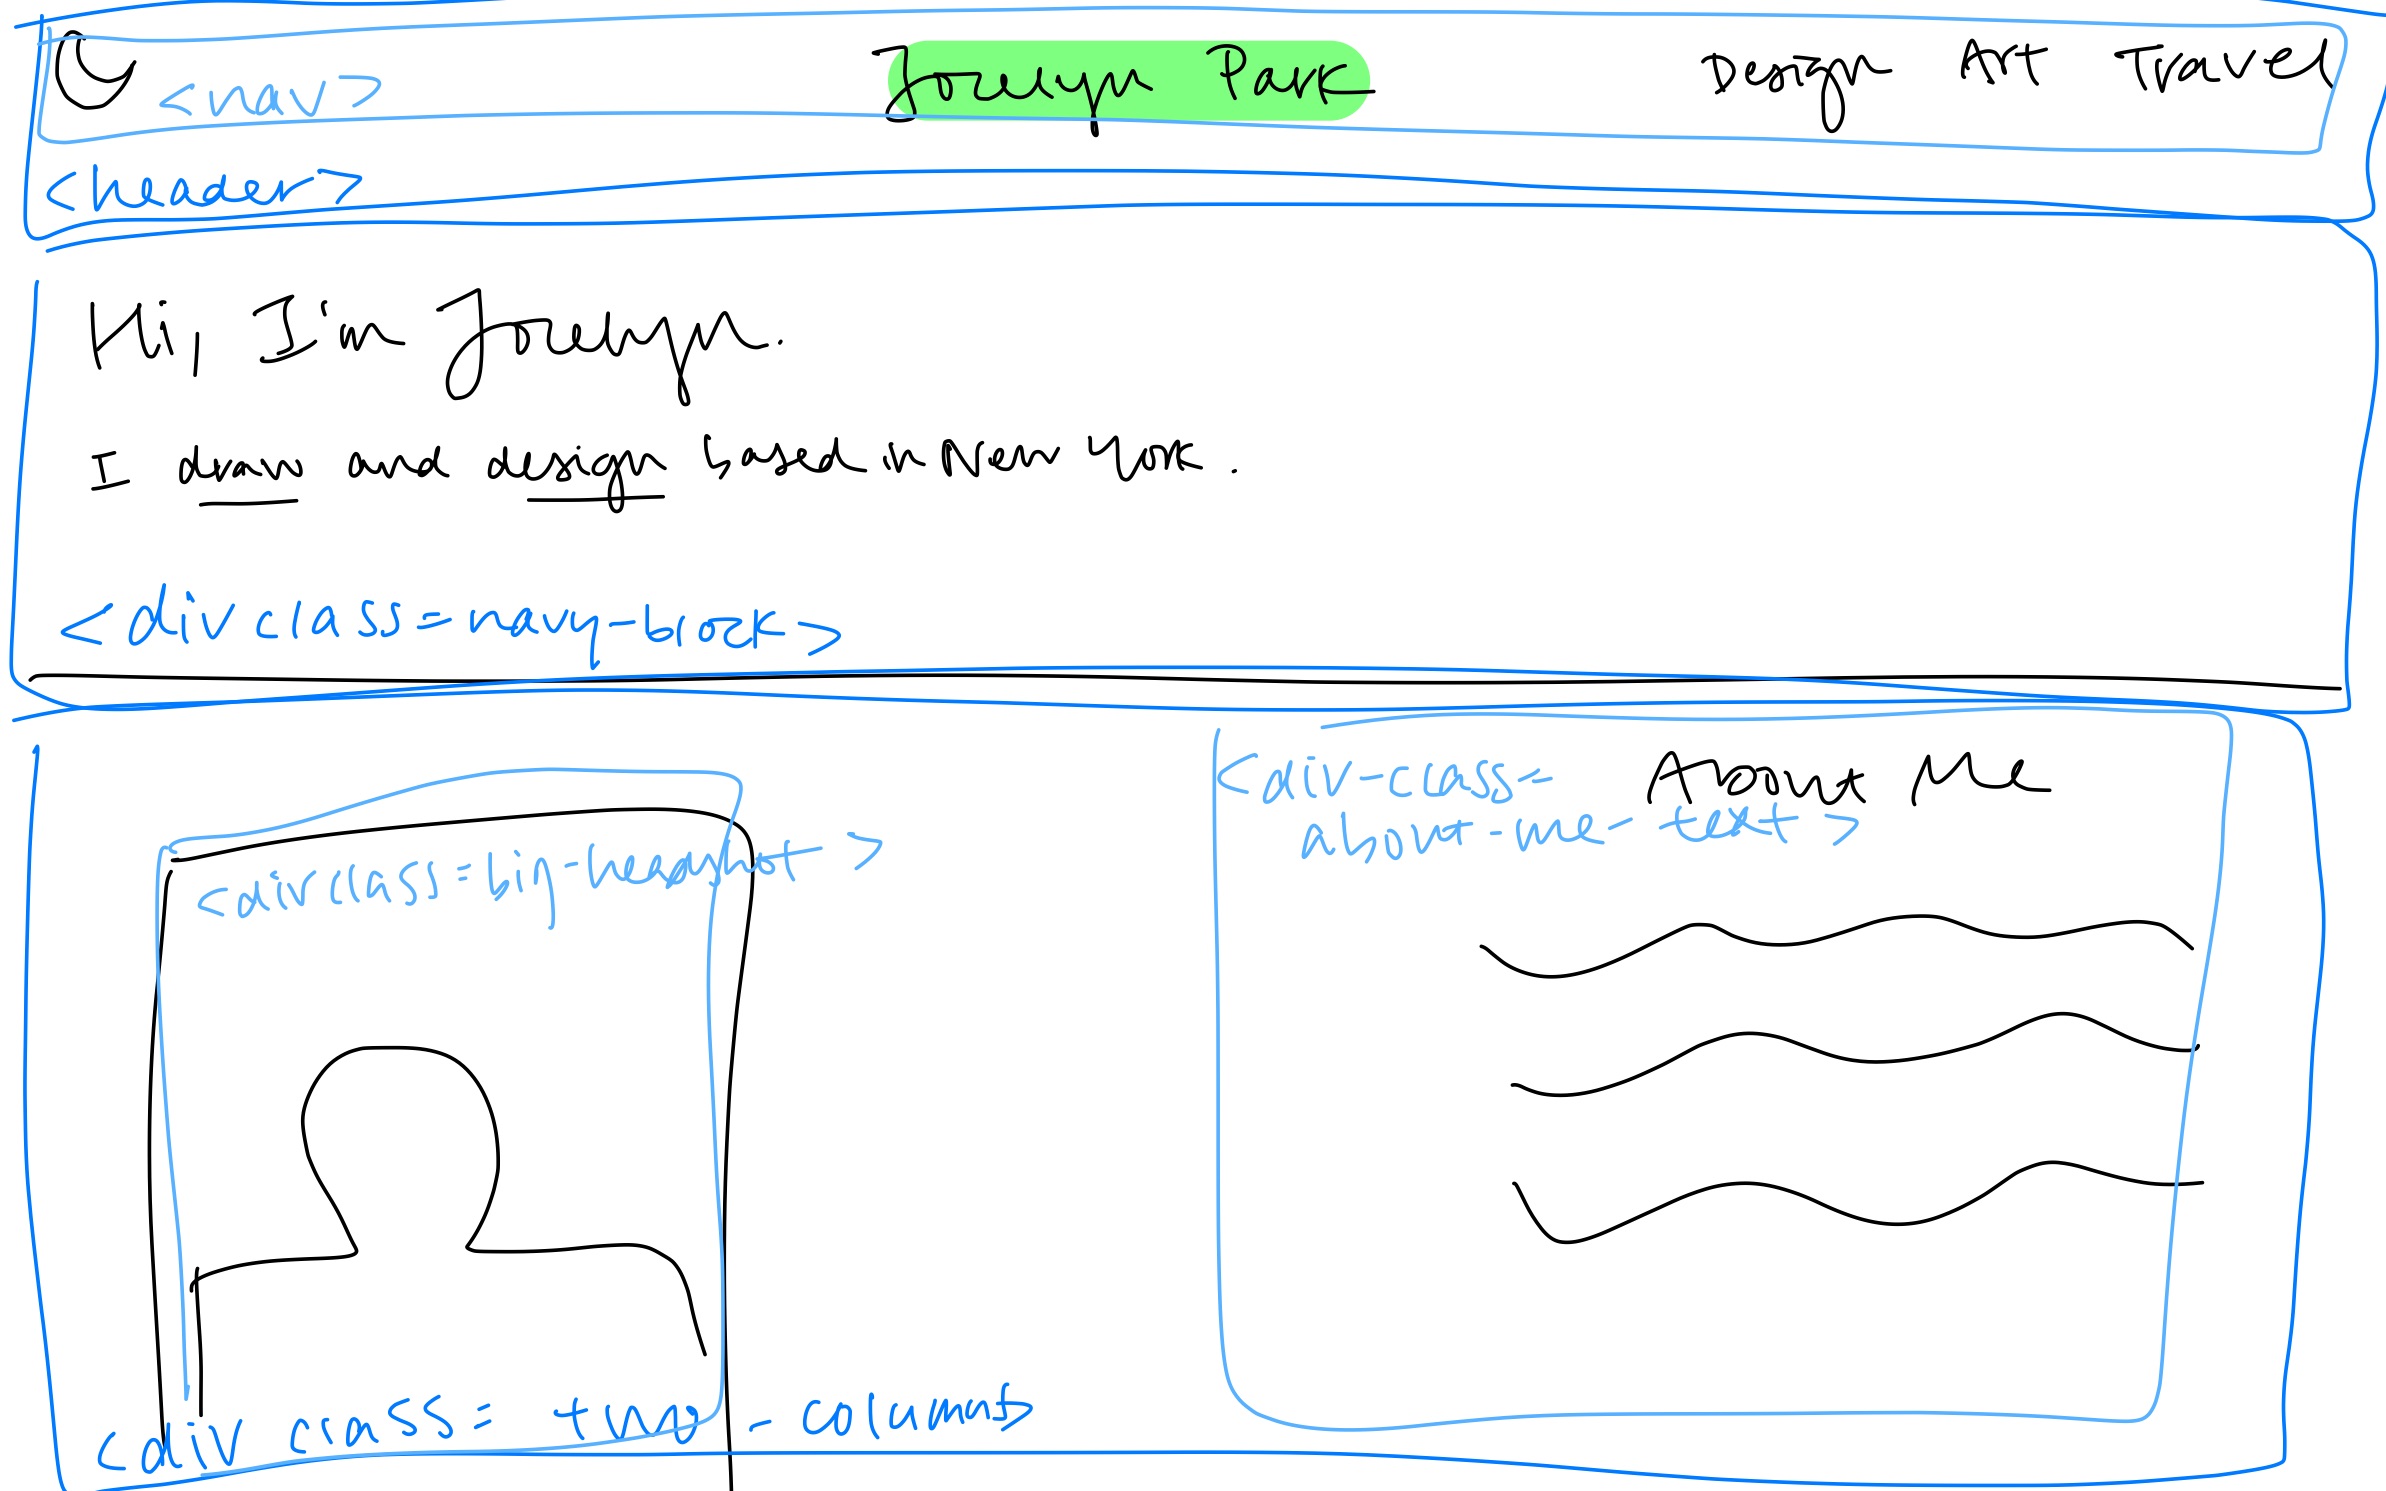 <nav> Joselyn Park Design Art Travel
<header>
Hi, I'm Joselyn.
I draw and design based in New York.
<div class=navy-block>
<div-class= About Me
about-me-text>
<div class=big-headshot>
<div class= two-columns